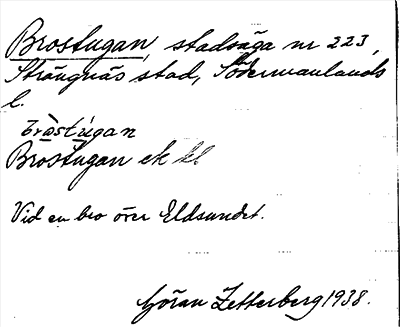 Brostugan, stadsäga nr 223,
Strängnäs stad, Södermanlands
l.
Brostugan ek
Vid en bro över Eldsundet.
Göran Zetterberg 1938.